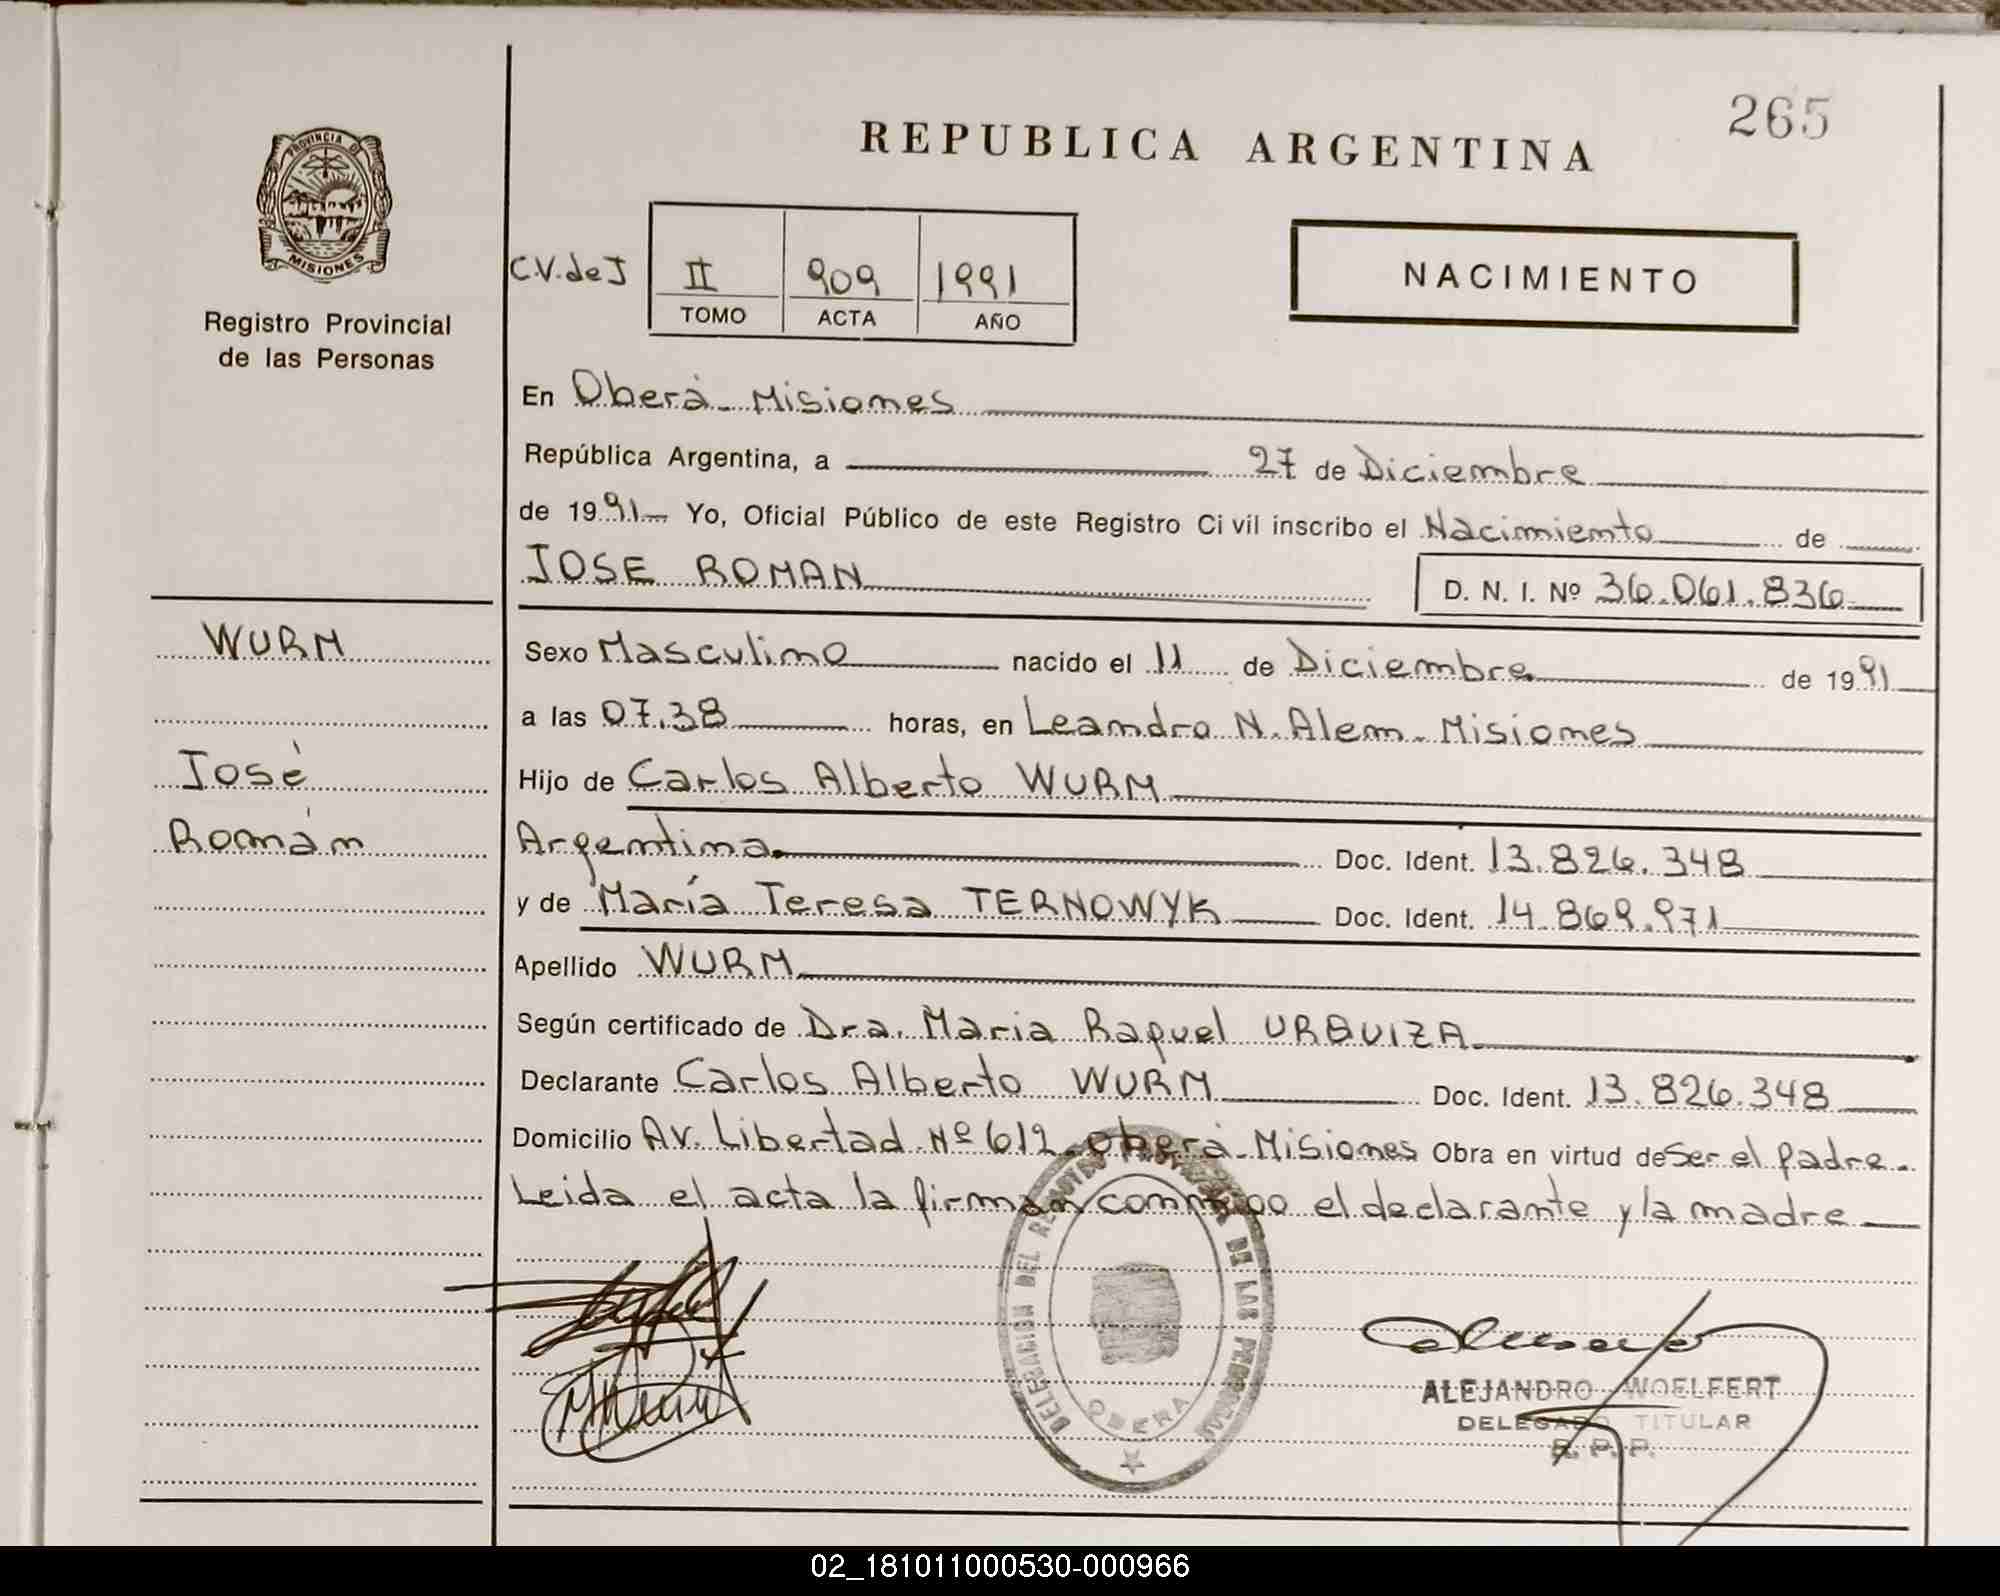 265
REPUBLICA ARGENTINA
PROVINCIA DE
MISIONES
Registro Provincial
de las Personas
C.V.de J
II 909 1991
TOMO ACTA AÑO
NACIMIENTO
En Oberá - Misiones
República Argentina, a 27 de Diciembre
de 1991 Yo, Oficial Público de este Registro Civil inscribo el Nacimiento de
JOSE ROMAN D. N. I. Nº 36.061.836
WURM
Sexo Masculino nacido el 11 de Diciembre de 1991
a las 07.38 horas, en Leandro N. Alem - Misiones
José
Hijo de Carlos Alberto WURM
Román
Argentina Doc. Ident. 13.826.348
y de María Teresa TERNOWYK Doc. Ident. 14.869.971
Apellido WURM
Según certificado de Dra. Maria Raquel URQUIZA
Declarante Carlos Alberto WURM Doc. Ident. 13.826.348
Domicilio Av. Libertad Nº 612 - Oberá - Misiones Obra en virtud de Ser el padre.
Leida el acta la firman conmigo el declarante y la madre
DELEGACION DEL REGISTRO PROVINCIAL DE LAS PERSONAS
OBERA
ALEJANDRO WOELFERT
DELEGADO TITULAR
R. P. P.
02_181011000530-000966